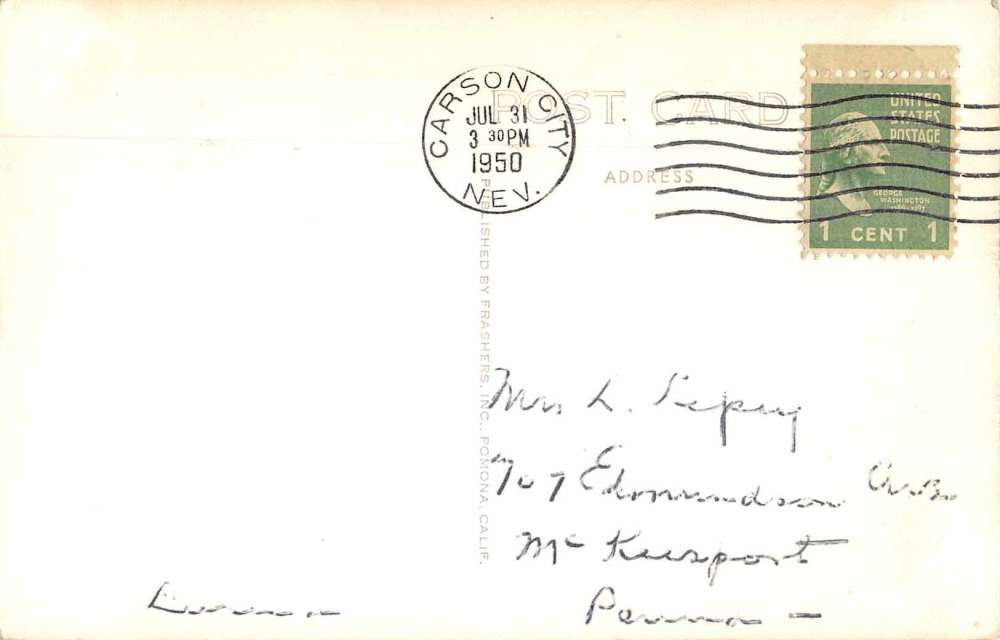 POST CARD
CARSON CITY
JUL 31
3 30 PM
1950
NEV.
UNITED
STATES
POSTAGE
GEORGE
WASHINGTON
1 CENT 1
ADDRESS
PUBLISHED BY FRASHERS, INC., POMONA, CALIF.
Mrs L.
707 Edmundson
Mc Keesport
Penna